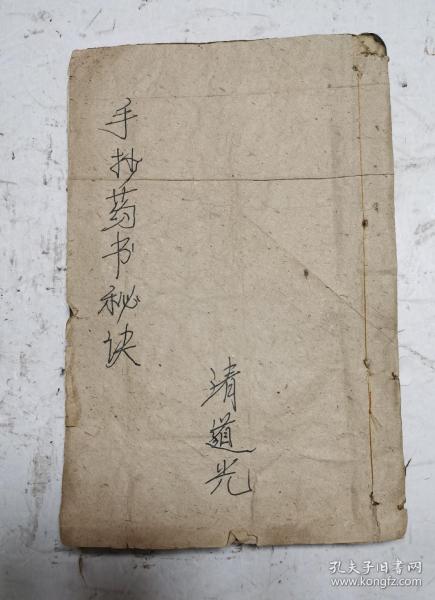 手抄药书秘诀
清道光
孔夫子旧书网
www.kongfz.com